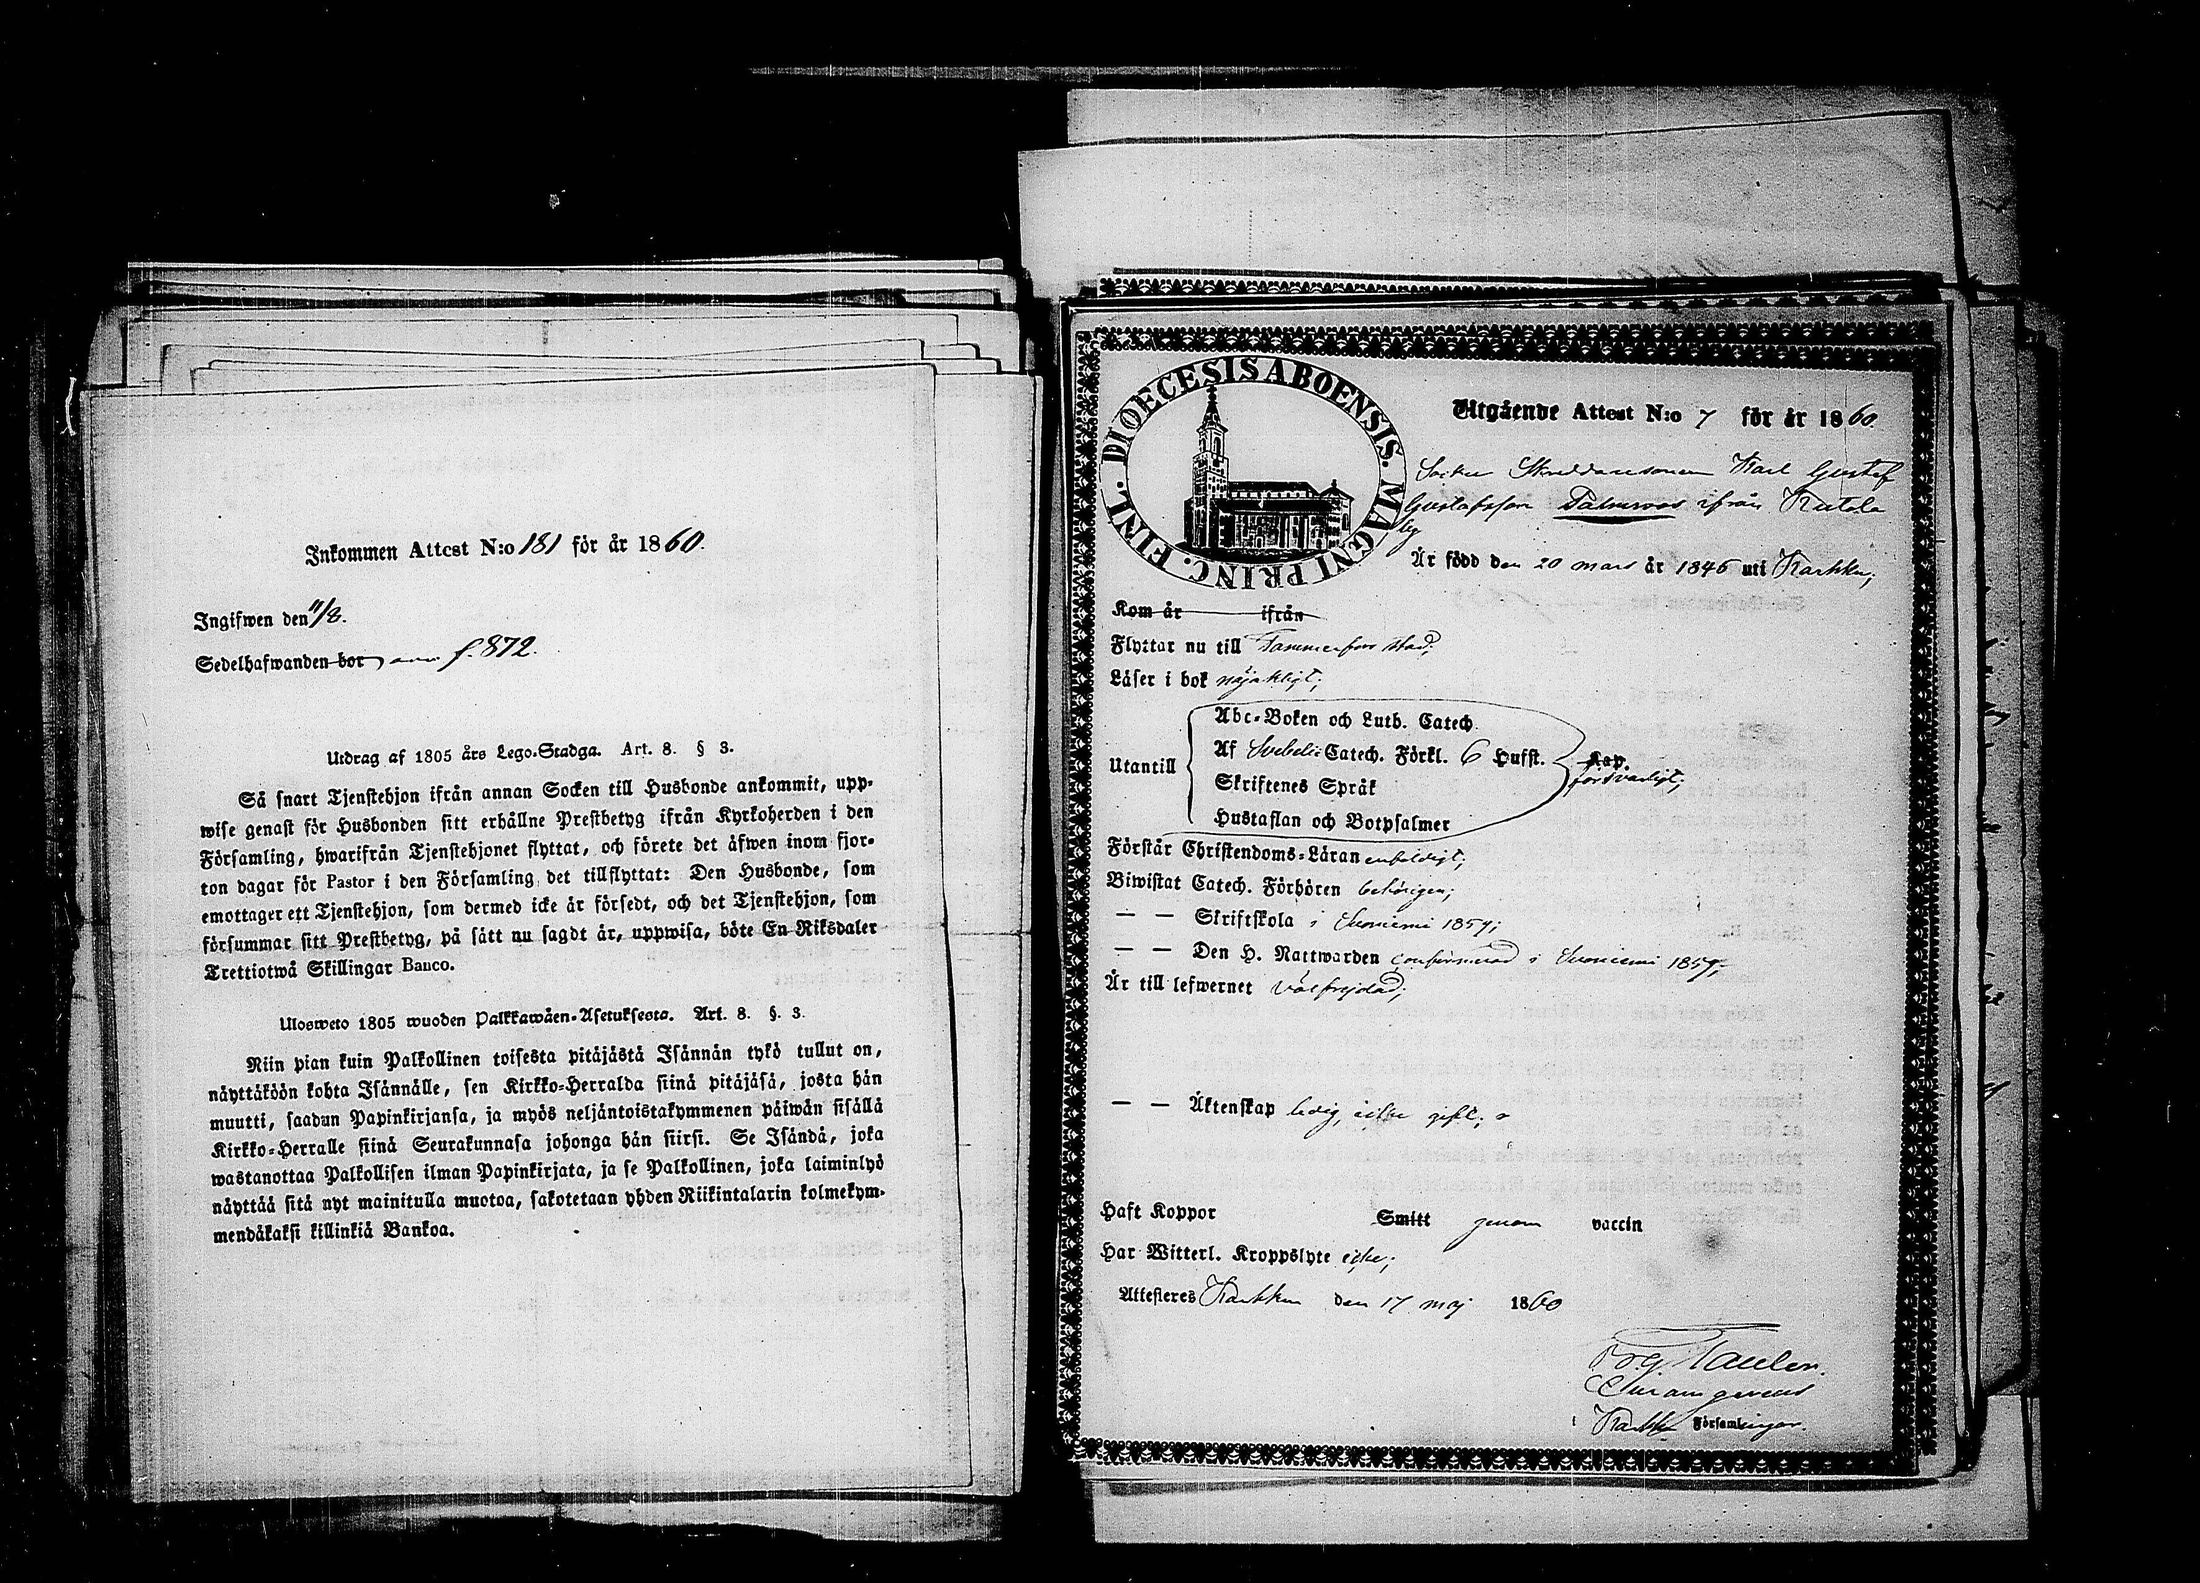 Inkommen Attest N:o 181 för år 1860.
Ingifwen den 11/8.
Sedelhafwanden bor f. 872.
Utdrag af 1805 års Lego-Stadga. Art. 8. § 3.
Så snart Tjenstehjon ifrån annan Socken till Husbonde ankommit, upp-
wise genast för Husbonden sitt erhållne Prestbetyg ifrån Kyrkoherden i den
Församling, hwarifrån Tjenstehjonet flyttat, och förete det äfwen inom fjor-
ton dagar för Pastor i den Församling det tillflyttat: Den Husbonde, som
emottager ett Tjenstehjon, som dermed icke är försedt, och det Tjenstehjon, som
försummar sitt Prestbetyg, på sätt nu sagdt är, uppwisa, böte En Riksdaler
Trettiotwå Skillingar Banco.
Ulosweto 1805 wuoden Palkkawäen-Asetuksesta. Art. 8. §. 3.
Niin pian kuin Palkollinen toisesta pitäjästä Isännän tykö tullut on,
näyttäköön kohta Isännälle, sen Kirkko-Herralda siinä pitäjäsä, josta hän
muutti, saadun Papinkirjansa, ja myös neljäntoistakymmenen päiwän sisällä
Kirkko-Herralle siinä Seurakunnasa johonga hän siirsi. Se Isändä, joka
wastanottaa Palkollisen ilman Papinkirjata, ja se Palkollinen, joka laiminlyö
näyttää sitä nyt mainitulla muotoa, sakotetaan yhden Riikintalarin kolmekym-
mendäkaksi killinkiä Bankoa.
DIOECESIS ABOENSIS. MAGNI PRINC. FINL.
Utgående Attest N:o 7 för år 1860
Karl Gustaf
Gustafsson Palmroos ifrån Kutala
by
Är född den 20 mars år 1846 uti Karkku;
Kom år ifrån
Flyttar nu till Tammerfors stad;
Läser i bok nöjaktligt;
Utantill
Abc-Boken och Luth. Catech.
Af Svebelii Catech. Förkl. 6 Hufst. Kap.
försvarligt;
Skriftenes Språk
Hustaflan och Botpsalmer
Förstår Christendoms-Läran enfaldigt;
Biwistat Catech. Förhören behörigen;
— — Skriftskola i Suoniemi 1859;
— — Den H. Nattwarden confirmerad i Suoniemi 1859;
Är till lefwernet välfrejdad;
— — Äktenskap ledig, icke gift;
Haft Koppor Smitt genom vaccin
Har Witterl. Kroppslyte icke;
Attesteres Karkku den 17 maj 1860
Curam gerens
i Karkku Församlingar.